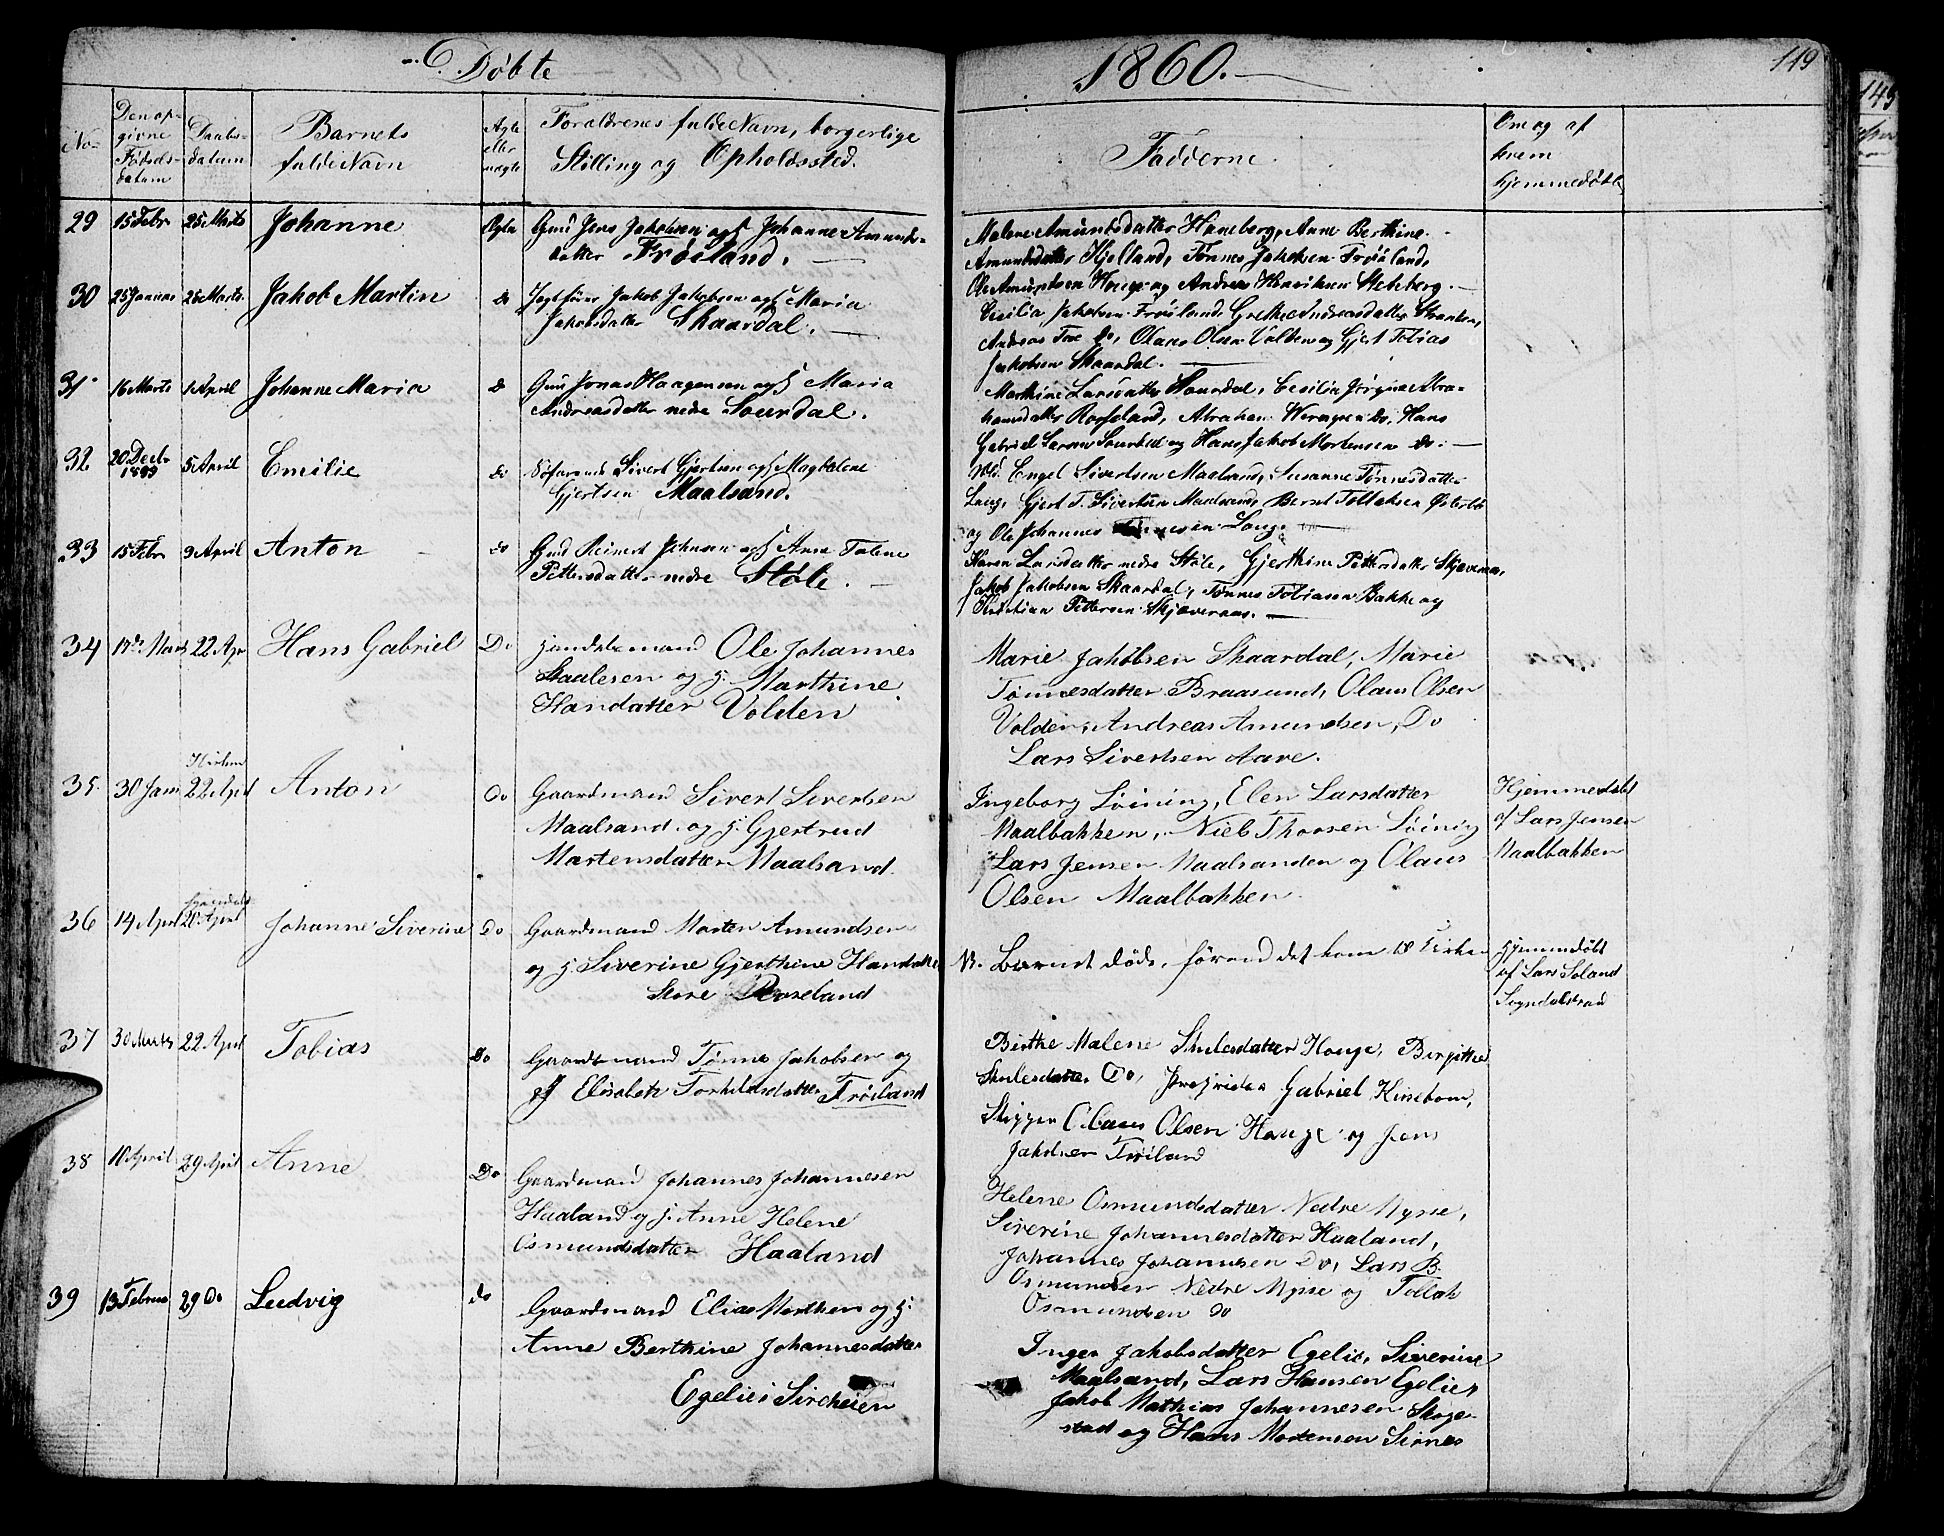 Døbte
1860.
119
No
Den op-
givne
Fødsels-
datum
Daabs-
datum
Barnets
fulde Navn
Ægte
eller
uægte
Forældrenes fulde Navn, borgerlige
Stilling og Opholdssted.
Fadderne.
Om og af
hvem
hjemmedøbt
29 15 Febr 25 Marts Johanne Ægte Gmd Jens Jakobsen og H Johanne Amunds-
datter Frøiland.
Malene Amundsdatter Haneberg, Anne Berthine
Amundsdatter Hjelland, Tønnes Jakobsen Frøiland,
Ole Amundsen Hauge og Andreas Henriksen Stebberg.
30 25 Januar 25 Marts Jakob Martin do Jakob Jakobsen og H Maria
Jakobsdatter Skaardal.
Cecilia Jakobsen Frøiland, Grethe Andreasdatter
Andreas do, Olaus Olsen Volden og Gjert Tobias
Jakobsen Skaardal.
31 16 Marts 1 April Johanne Maria do Gmd Jonas Haagensen og H Maria
Andreasdatter nedre Sourdal.
Marthine Larsdatter Sourdal, Cecilia Jørgine Abra-
hamsdatter Rosseland, Abraham do, Hans
Gabriel Larsen og Hans Jakob Mortensen do.
32 20 Decbr 5 April Emilie do Søfarende Sivert Gjertsen og H Magdalene
Gjertsen Maalsand.
Engel Sivertsen Maalsand, Susanne Tønnesdatter
Long, Gjert T. Sivertsen Maalsand, Bernt Tollaksen
og Ole Johannes Long.
33 15 Febr 9 April Anton do Gmd Reinert Johnsen og H Anne Tolene
Pettersdatter nedre Støle.
Karen Larsdatter nedre Støle, Gjerthine Pettersdatter Skjævernes,
Jakob Jakobsen Skaardal, Tønnes Tobiasen Bakke og
Christian Pettersen Skjævernas.
34 17de Marts 22 Apr Hans Gabriel Do Handelsmand Ole Johannes
Staalesen og H. Marthine
Hansdatter Volden
Marie Jakobsen Skaardal, Marie
Tønnesdatter Braasund, Olaus Olsen
Volden, Andreas Amundsen, Do
Lars Sivertsen Aave.
35 30 Jan 22 April Anton Do Gaardmand Sivert Sivertsen
Maalsand og H. Gjertrud
Martensdatter Maalsand.
Ingeborg Løining, Elen Larsdatter
Maalbakken, Niels Thorsen Løinig
Lars Jensen Maalsanden og Olaus
Olsen Maalbakken.
Hjemmedøbt
af Lars Jensen
Maalbakken
36 14 April 20 April Johanne Siverine Do Gaardmand Morten Amundsen
og H. Siverine Gjerthine Hansdatter
Store Roseland
NB. Barnet døde, førend det kom til Kirken
hjemmedøbt
af Lars Soland
Sogndalstrand
37 30 Marts 22 April Tobias Do Gaardmand Tønnes Jakobsen og
H Elisabeth Torkildsdatter Frøiland
Birthe Malene Skulesdatter Hauge, Birgitte
Skulesdatter Do, Gabriel Kirsebom,
Skipper Claus Olsen Hauge og Jens
Jakobsen Frøiland
38 10 April 29 April Anne Do Gaardmand Johannes Johannesen
Haaland og H. Anne Helene
Osmundsdatter Haaland
Helene Osmundsdatter Nedre Mysse,
Siverine Johannesdatter Haaland,
Johannes Johannesen Do, Lars B.
Osmundsen Nedre Mysse og Tollak
Osmundsen do
39 13 Februar 29 Do Ludvig do Gaardmand Elias Morthen og H.
Anne Berthine Johannesdatter
Egelie i Sircheien
Inger Jakobsdatter Egelie, Siverine
Maalsand, Lars Hansen Egelie,
Jakob Mathias Johannesen Skoge-
stad og Hans Mortensen Sirnes